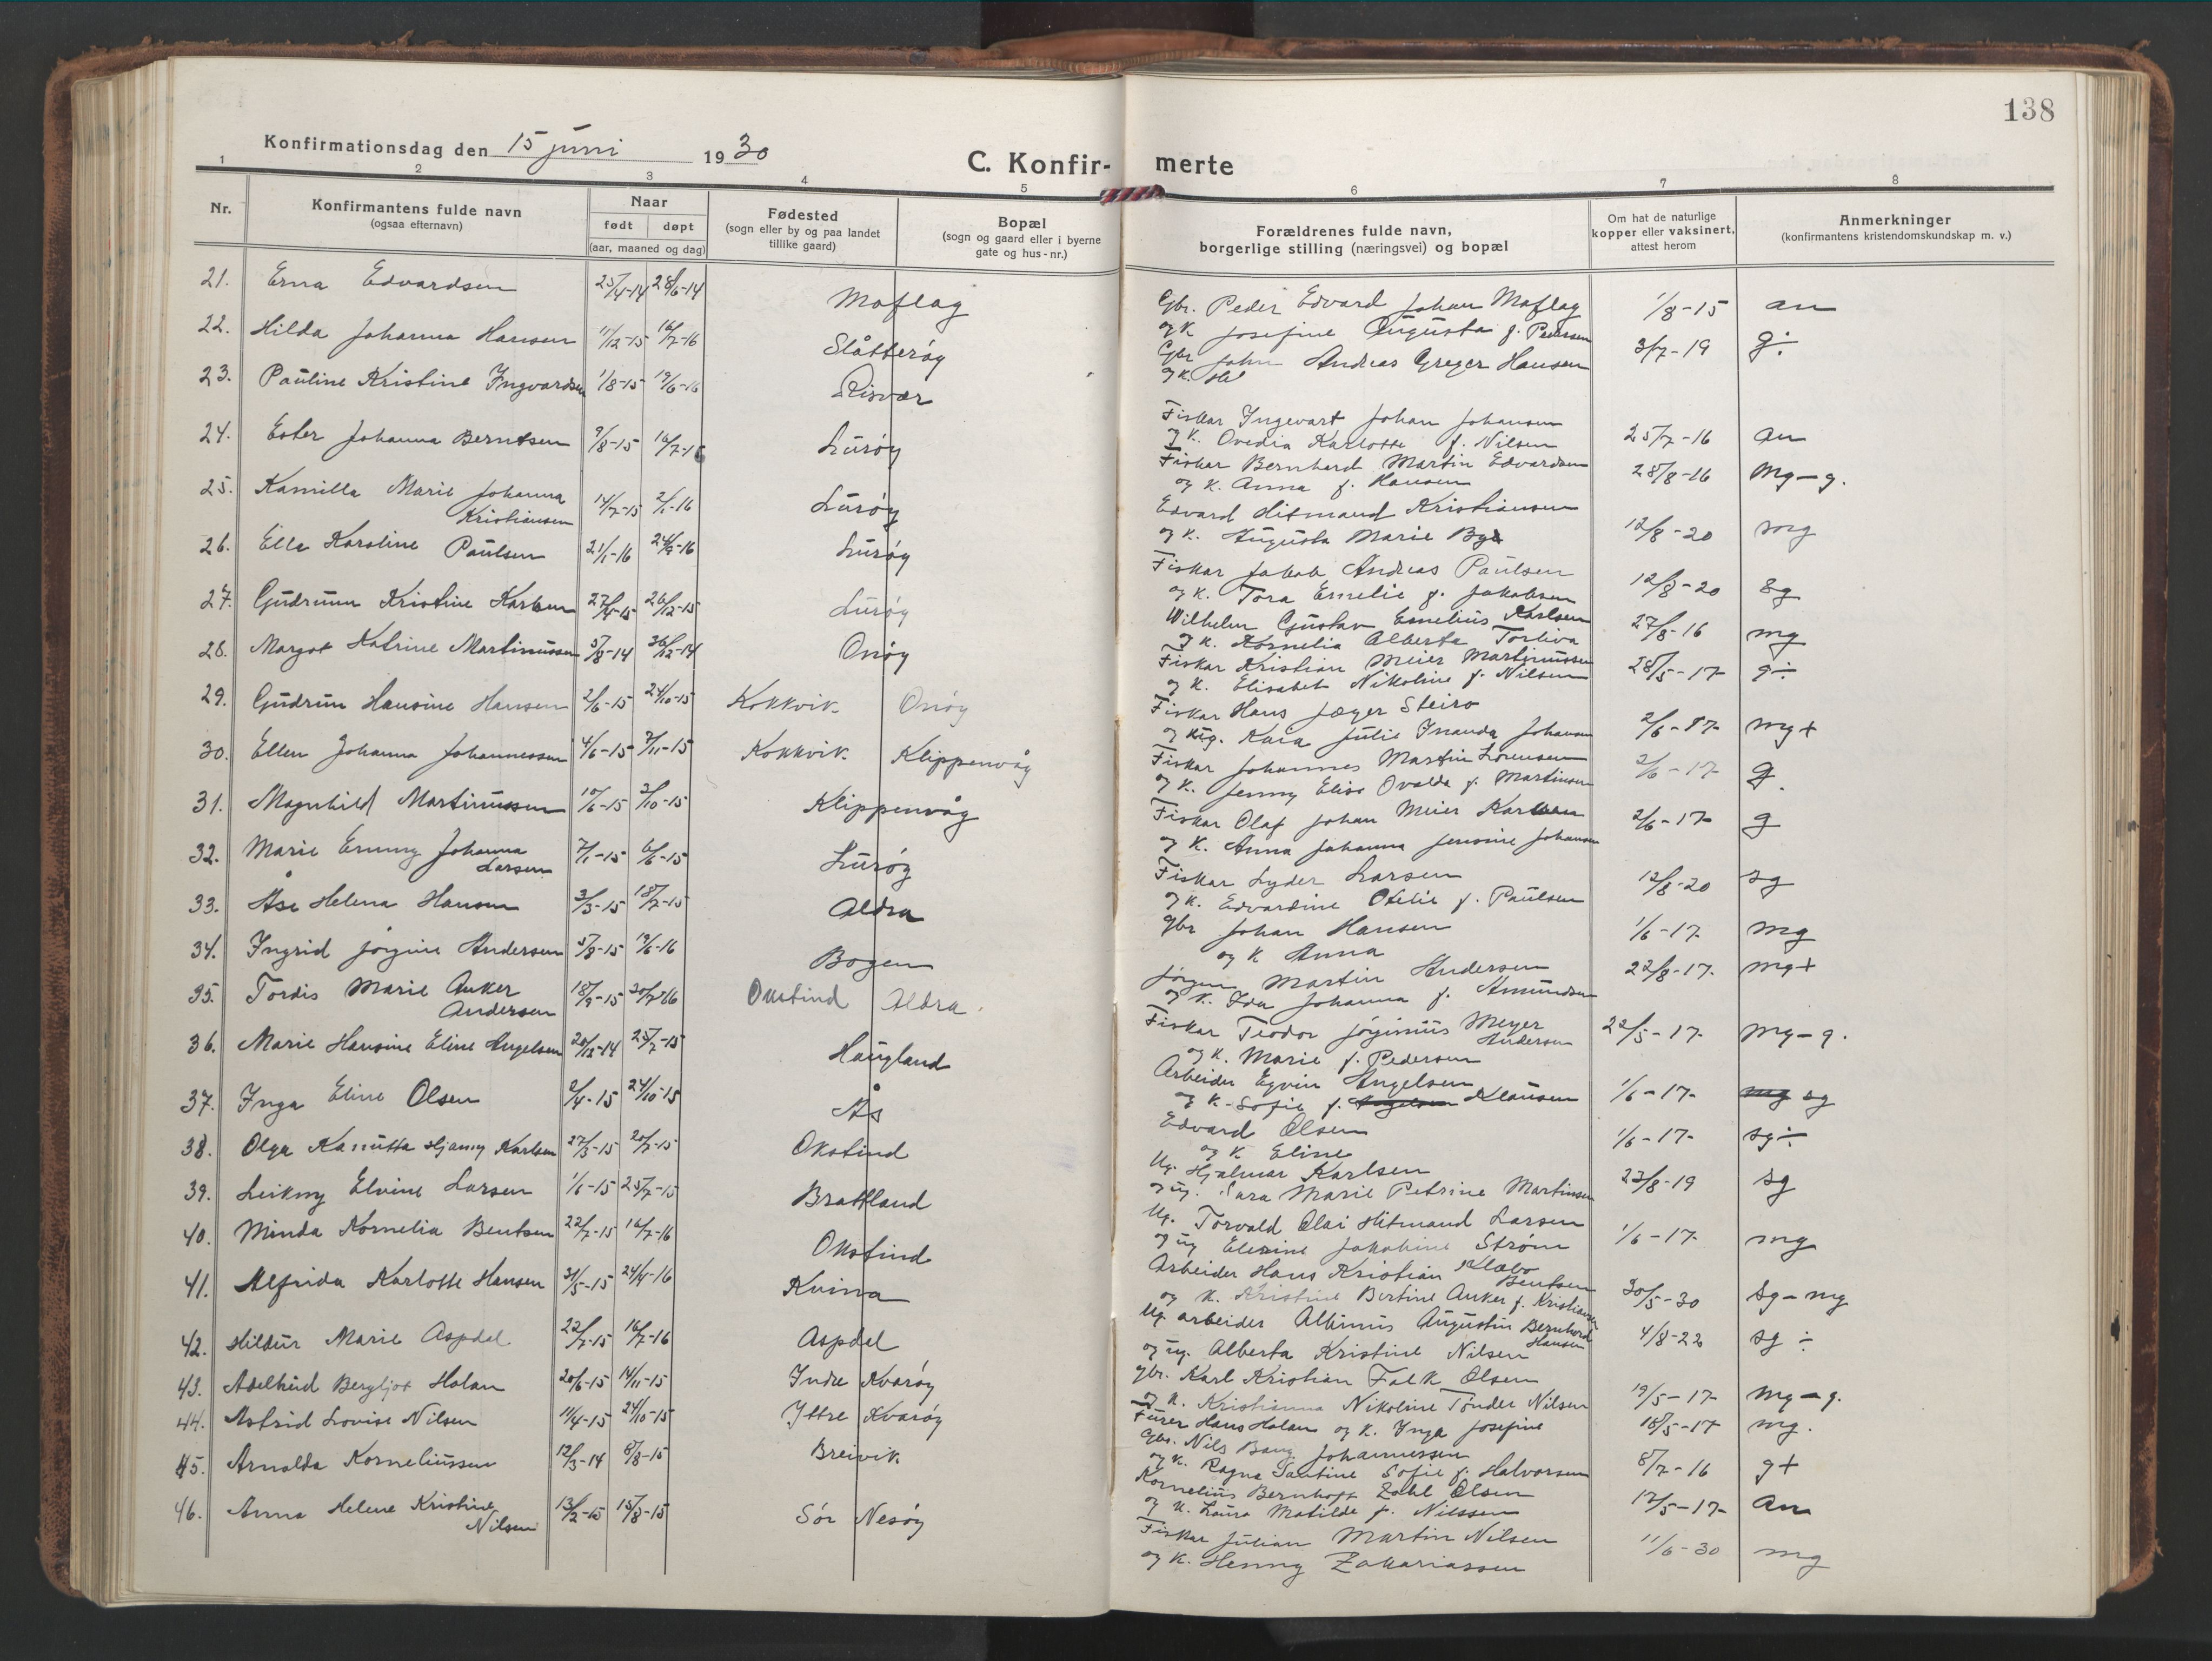 138
Konfirmationsdag den 15 juni 1930
C. Konfir- merte
1 2 3 4 5 6 7 8
Nr.
Konfirmantens fulde navn
(ogsaa efternavn)
Naar
født døpt
(aar, maaned og dag)
Fødested
(sogn eller by og paa landet
tillike gaard)
Bopæl
(sogn og gaard eller i byerne
gate og hus-nr.)
Forældrenes fulde navn,
borgerlige stilling (næringsvei) og bopæl
Om hat de naturlige
kopper eller vaksinert,
attest herom
Anmerkninger
(konfirmantens kristendomskundskap m. v.)
21. Erna Edvardsen 25/4-14 28/6-14 Moflag
Gbr. Peder Edvard Johan Moflag 1/8-15 an
og K Josefine Augusta f. Pedersen
22. Hilda Johanna Hansen 11/12-15 16/7-16 Slåtterøy
Gbr John Andreas Greger Hansen 3/7-19 g÷
og K.
23. Pauline Kristine Ingvardsen 1/8-15 19/6-16 Risvær
Fisker Ingevart Johan Johansen
og K. Ovedia Karlotte f. Nilsen 25/7-16 an
24. Ester Johanna Berntsen 9/8-15 16/7-16 Lurøy
Fisker Bernhard Martin Edvardsen 28/8-16 mg-g.
og K. Anna f. Hansen
25. Kamilla Marie Johanna
Kristiansen 14/7-15 2/1-16 Lurøy
Edvard Hitmand Kristiansen
og K. Augusta Marie 12/8-20 mg
26. Ella Karoline Paulsen 21/1-16 24/4-16 Lurøy
Fisker Jakob Andreas Paulsen
og K. Tora Emelie f. Jakobsen 12/8-20 sg
27. Gudrunn Kristine Karlsen 27/4-15 26/12-15 Lurøy
Wilhelm Gustav Emelius Karlsen 27/8-16 mg
og K. Kornelia Alberta Torliva
28. Margot Katrine Martinussen 5/8-14 26/12-14 Onøy
Fisker Kristian Meier Martinussen 28/5-17 g÷
og K. Elisabet Nikoline f. Nilsen
29. Gudrun Hansine Hansen 2/6-15 24/10-15 Kokkvik. Onøy
Fisker Hans Jæger Steiro
og ug. Kaia Julie Inanda Johansen 2/6-17 mg+
30. Ellen Johanna Johannessen 4/6-15 7/11-15 Kokkvik. Klippenvåg
Fisker Johannes Martin Lorensen 2/6-17 g.
og K. Jenny Elise Ovalda f. Martinsen
31. Magnhild Martinussen 10/6-15 3/10-15 Klippenvåg
Fisker Olaf Johan Meier Karlsen 2/6-17 g
og K. Anna Johanna Jensine Johansen
32. Marie Emmy Johanna
Larsen 7/1-15 6/6-15 Lurøy
Fisker Lyder Larsen 12/8-20 sg
og K. Edvardine Otelie f. Paulsen
33. Åse Helena Hansen 3/3-15 18/7-15 Aldra
gbr Johan Hansen 1/6-17 mg
og K Anna
34. Ingrid Jørgine Andersen 5/8-15 19/6-16 Bogen
Jørgen Martin Andersen 22/8-17. mg+
og K. Ida Johanna f. Amundsen
35. Tordis Marie Anker
Andersen 18/9-15 20/7-16 Okstind Aldra.
Fisker Teodor Jørginius Meyer
Andersen 22/5-17 mg-g.
og K. Marie f. Pedersen
36. Marie Hansine Eline Angelsen 20/12-14 25/7-15 Haugland
Arbeider Egvin Angelsen 1/6-17 sg
og K. Sofie f. Klausen
37. Inga Eline Olsen 2/4-15 24/10-15 Ås
Edvard Olsen 1/6-17 sg÷
og K Eline
38. Olga Kanutta Hjanny Karlsen 27/3-15 20/7-15 Okstind
Ug. Hjalmar Karlsen 23/8-19 sg
og ug. Sara Marie Petrine Martinsen
39. Leikny Elvine Larsen 1/6-15 25/7-15 Brattland
Ug. Torvald Olai Hitmand Larsen 1/6-17 mg
og ug Elesine Jakobine Strøm
40. Minda Kornelia Bentsen 22/7-15 16/7-16 Okstind
Arbeider Hans Kristian Klæbo
Bentsen 30/5-30 sg-mg
og K. Kristine Bertine Anker f. Kristiansen
41. Alfrida Karlotte Hansen 31/5-15 24/4-16 Kvina
Ug. arbeider Albinus Augustin Bernhard
Hansen 4/8-22 sg ÷
og ug. Alberta Kristine Nilsen
42. Hildur Marie Aspdal 22/7-15 16/7-16 Aspdal
gbr. Karl Kristian Falk Olsen
og K. Kristianna Nikoline Tønder Nilsen 19/5-17 mg-g.
43. Adelheid Bergljot Holan 20/6-15 14/11-15 Indre Kvarøy
Furer Hans Holan og K. Inga Josefine 18/5-17 mg.
44. Astrid Lovise Nilsen 11/4-15 24/10-15 Ytre Kvarøy
Gbr. Nils Bang Johannessen
og K. Ragna Santine Sofie f. Halvorsen 8/7-16 g+
45. Arnolda Korneliussen 12/3-14 8/8-15 Breivik.
Kornelius Bernhoft Zahl Olsen
og K. Laura Matilde f. Nilssen 12/5-17 an
46. Anna Helene Kristine
Nilsen 13/2-15 15/8-15 Sør Nesøy
Fisker Julian Martin Nilsen 11/6-30 mg
og K. Henny Zakariassen